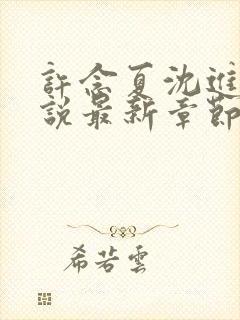 許念夏沈進
說最新章節
希若雲